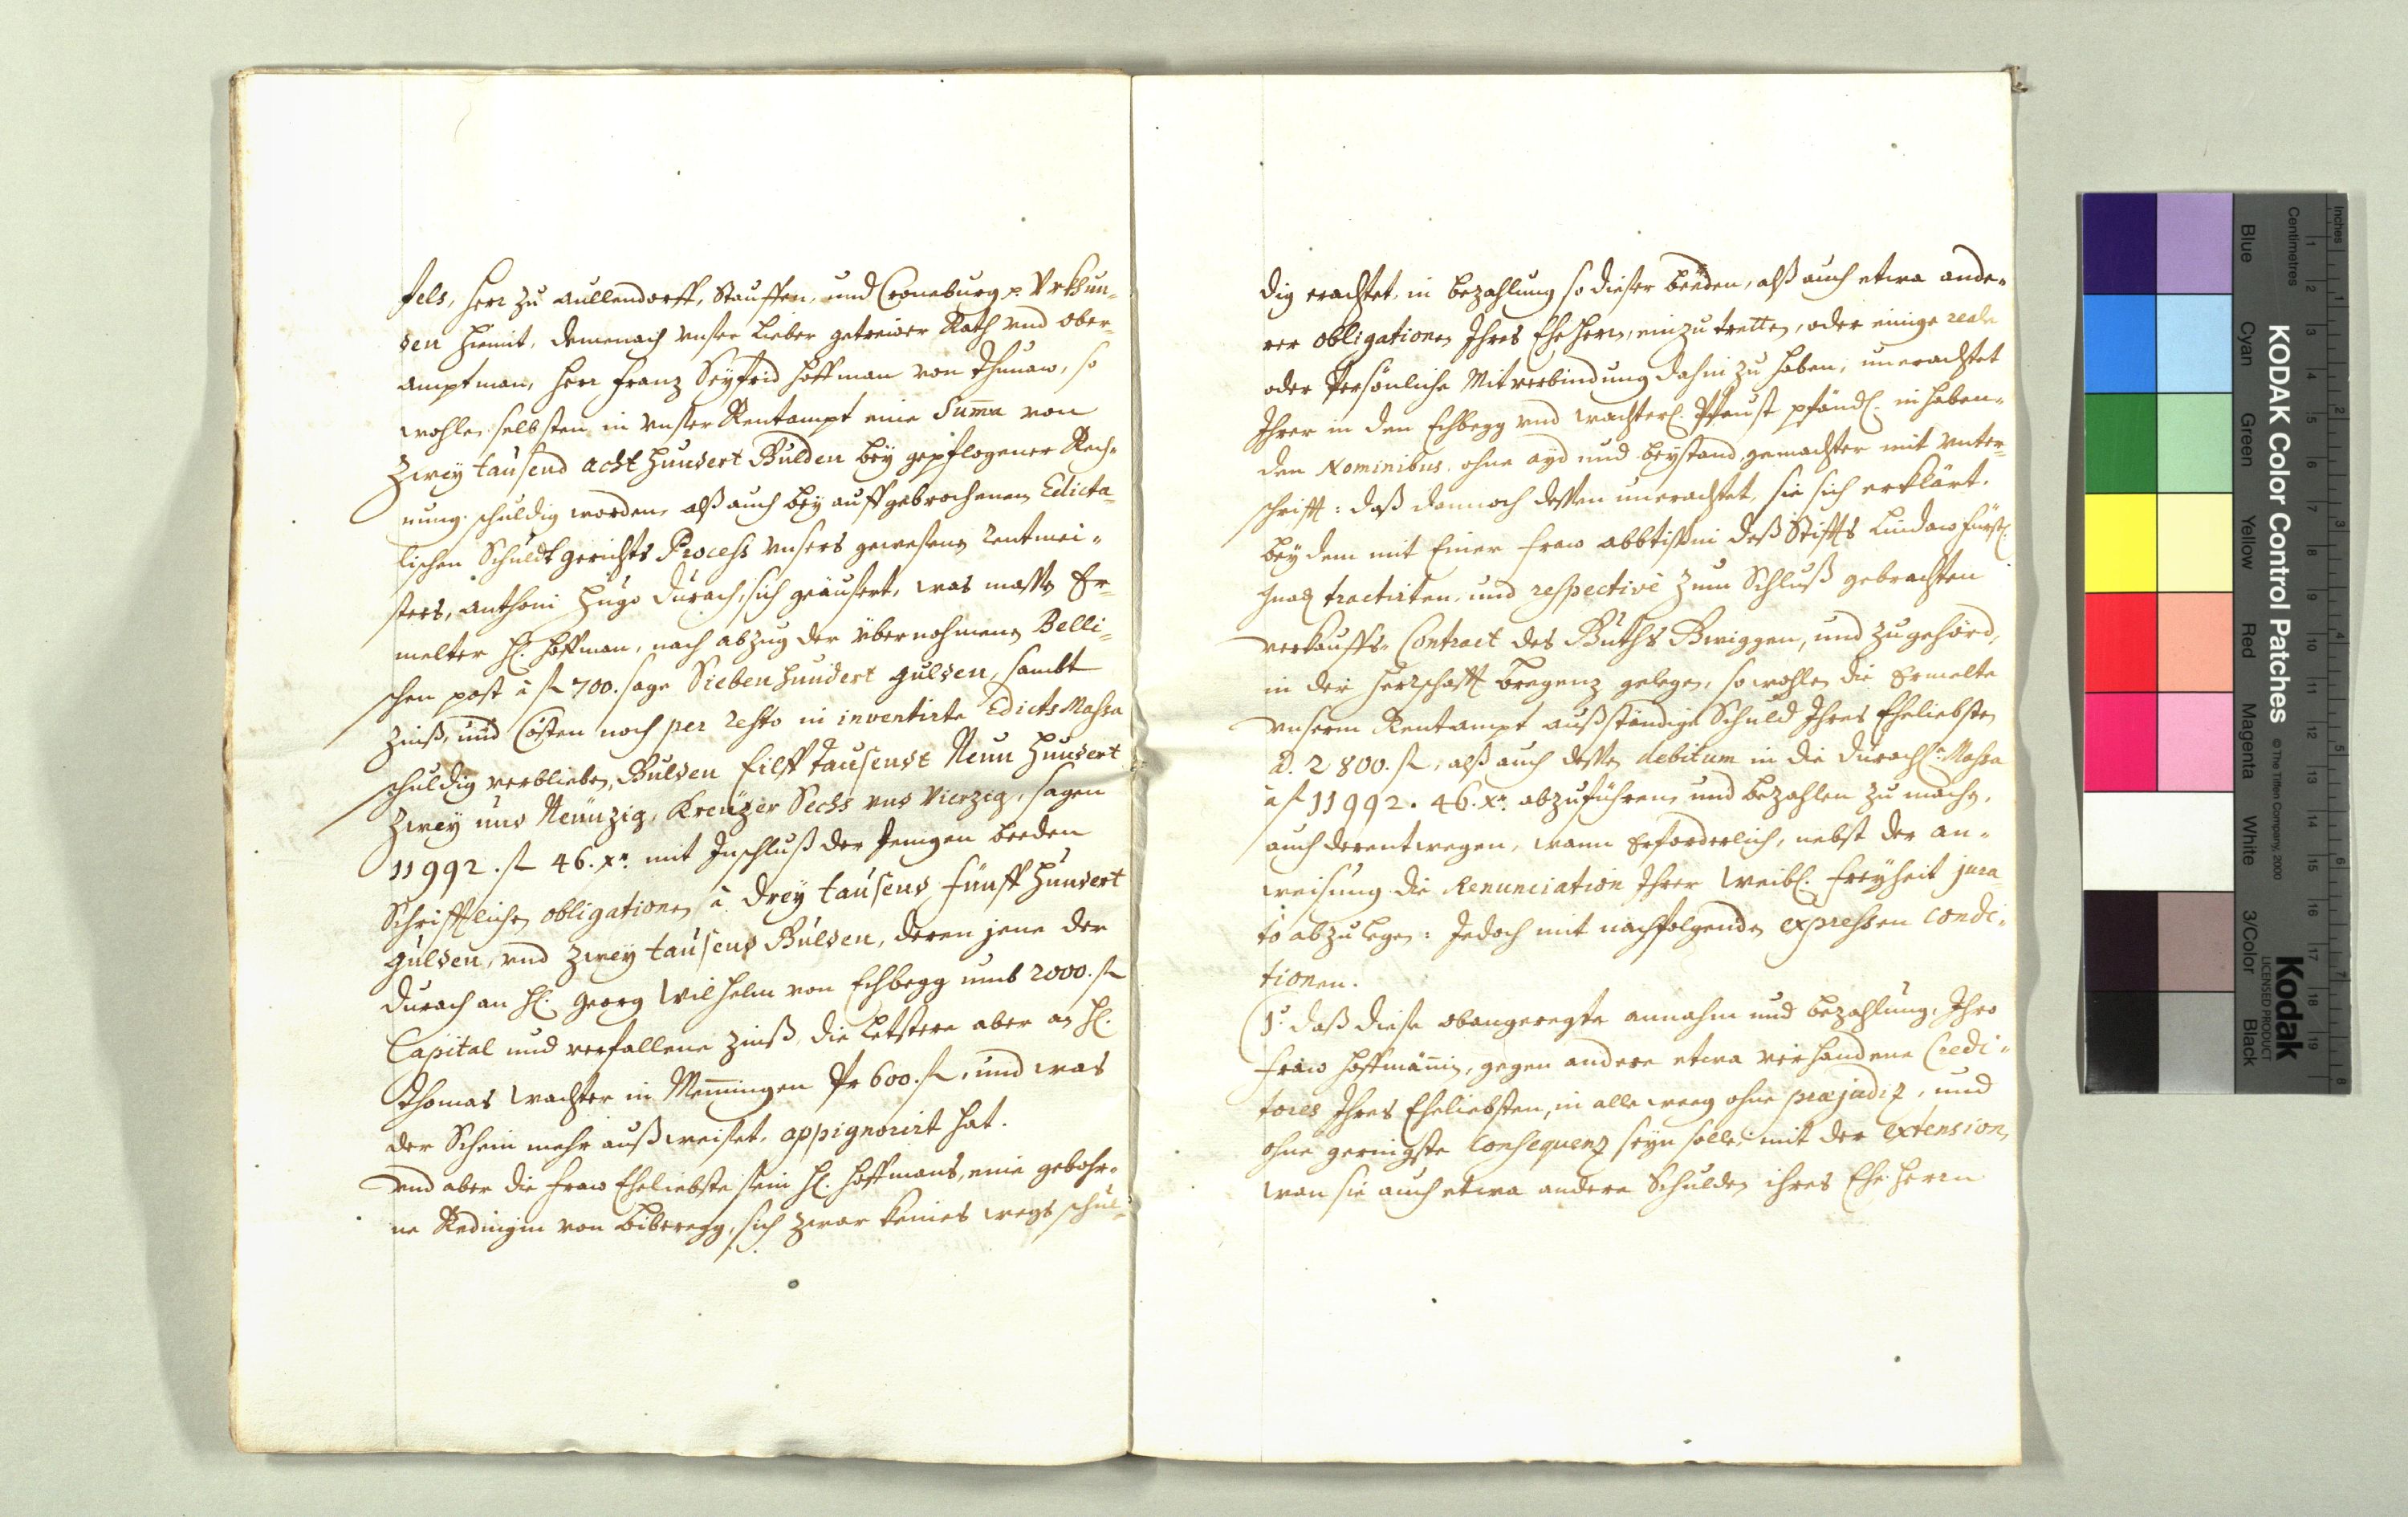 fels, Herr zu Aullendorff, Stauffen, und Croneburg p. Vrkhun-
den hiemit, demenach vnser lieber getrewer Rath vnd Ober-
amptman, Herr Franz Seyfrid Hoffman von Thunaw, so
wohlen selbsten in vnser Rentampt eine Suma von
Zwey tausend acht hundert Gulden bey gepflogener Rech-
nung schuldig worden, alß auch bey auffgebrochenen Edicta-
lischen Schuldt gerichts Process vnsers gewesenen Rentmei-
sters, Anthoni Hugo Durach, sich geäusert, was massen Er-
melter H. Hoffman, nach abzug der übernohmenen Belli-
schen post à fl 700. sage Sieben hundert gulden, sambt
Zinß, und Cösten noch per resto in inventirte Edicts Massa
schuldig verblieben, Gulden Eilff tausendt Neun hundert
Zwey und Neünzig, Kreüzer Sechs vnd Vierzig, sagen
11992. fl 46. xr. mit Inschluß der jenigen beeden
Schrifftlichen obligationen à drey tausend fünff hundert
gulden, vnd zwey tausend Gulden, deren jene der
Durach an H. Georg Wilhelm von Eschbegg umb 2000. fl
Capital und verfallene Zinß, die letstere aber an H.
Thomas Wachter in Memingen Pr 600. fl, und was
der Schein mehr außweiset, oppignorirt hat.
Vnd aber die Fraw Eheliebste sein H. Hoffmans, eine gebohr-
ne Redingin von Biberegg, sich zwar keines wegs schul-
dig erachtet, in bezahlung so dieser beeden, alß auch etwa ande-
rer obligationen Ihres Ehe Herrn, einzutretten, oder einige reale
oder Persönliche Mitverbindung dahin zu haben, unerachtet
Ihrer in den Eschbegg vnd Wachterl. pfändl. inhaben-
den Nominibus. ohne ayd und beystand, gemachter mit unter-
schrifft: daß dannoch dessen unerachtet, sie sich erklärt.
bey dem mit Einer Fraw Abbtissin deß Stiffts Lindaw fürstl.
Gnad tractirten, und respectivè zum Schluß gebrachten
verkauffs- Contract des Guths Gwiggen, und zugehörd,
in der Herrschafft Bregenz gelegen, so wohlen die Ermelte
vnserm Rentampt außständige Schuld Ihres Eheliebsten
à. 2800. fl, alß auch dessen debitum in die Durachl. Massa
à fl 11992. 46. xr. abzuführen, und bezahlen zu machen,
auch derentwegen, wann Erforderlich, nebst der an-
weisung die Renunciation Ihrer Weibl. Freyheit jura-
tò abzulegen: Jedoch mit nachfolgenden expressen condi-
tionen.
1o. daß diese obangeregte annahm und bezahlung, Ihro
Fraw Hoffmänin, gegen andere etwa vorhandene Credi-
tores Ihres Eheliebsten, in alle weeg ohne præjudiz, und
ohne geringste Consequenz seyn solle, mit der extension,
wan sie auch etwa andere Schulden ihres Ehe Herrn